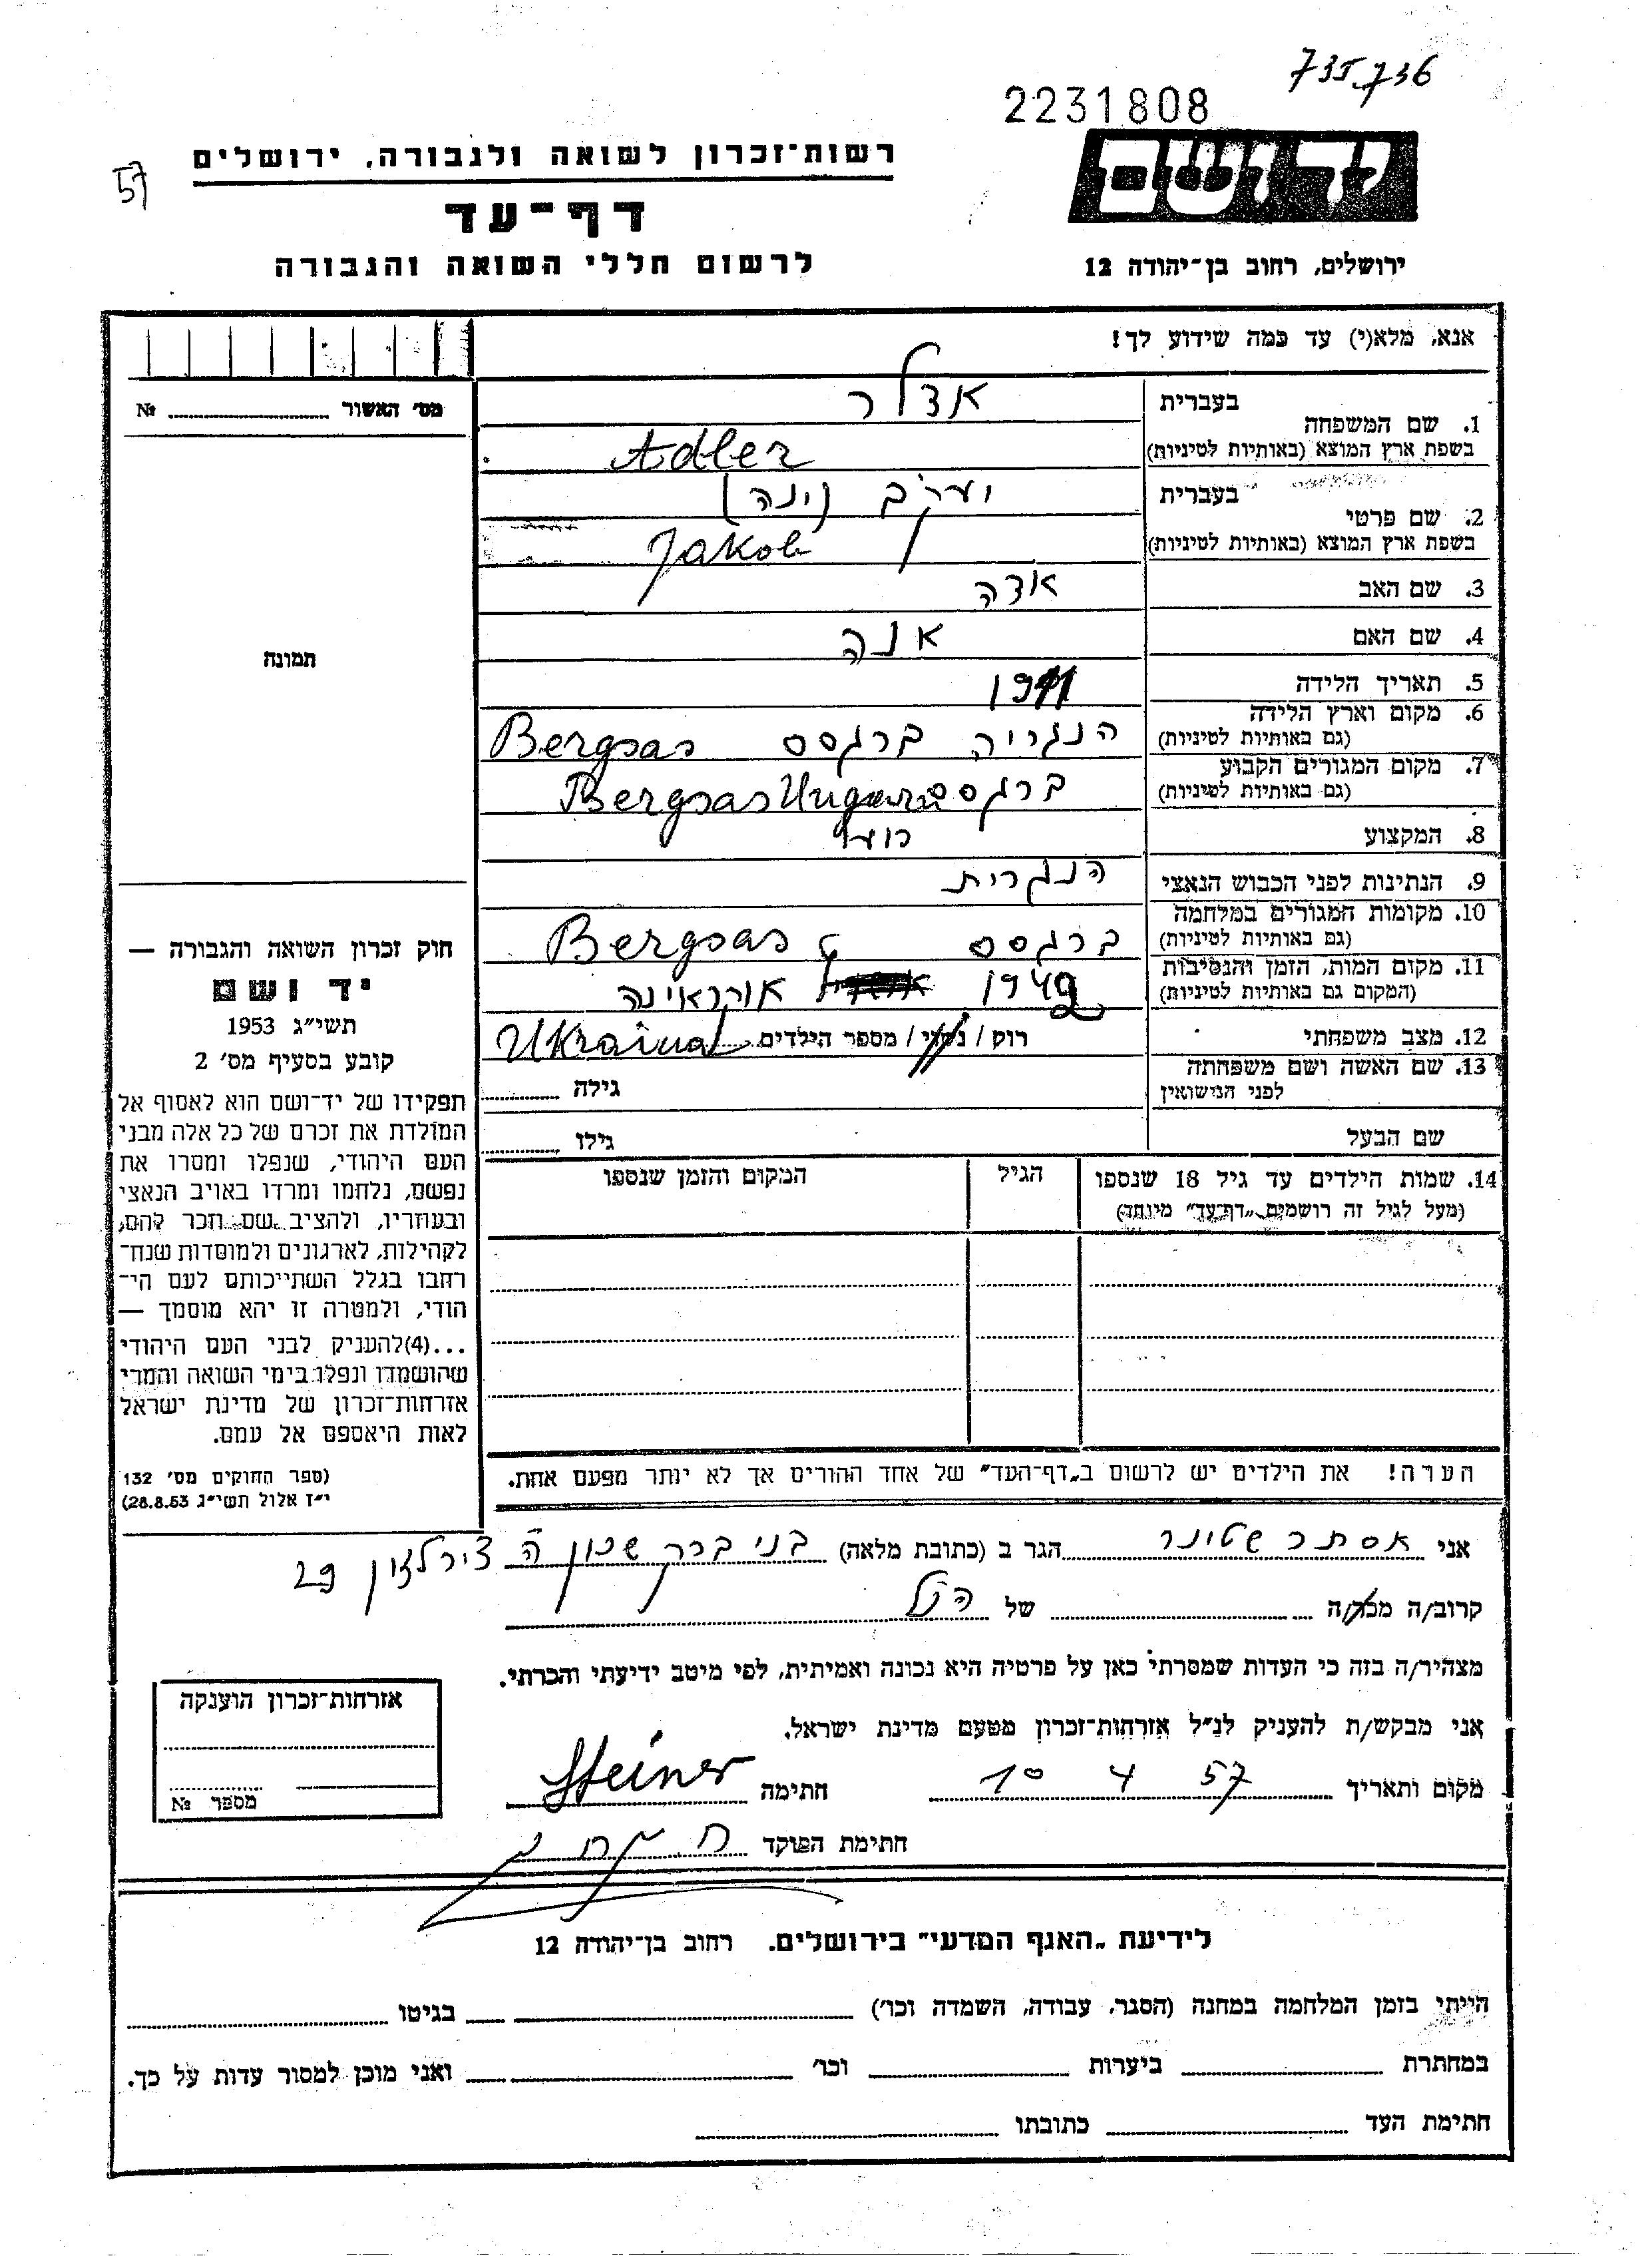 735.736
2231808
57
יד ושם
רשות־זכרון לשואה ולגבורה, ירושלים
דף־עד
ירושלים, רחוב בן־יהודה 12
לרשום חללי השואה והגבורה
אנא, מלא(י) עד כמה שידוע לך!
מס׳ האשור № 
1. שם המשפחה בעברית אדלר
בשפת ארץ המוצא (באותיות לטיניות) Adler
2. שם פרטי בעברית יעקב (יונה)
בשפת ארץ המוצא (באותיות לטיניות) Jakob
3. שם האב
4. שם האם אנה
תמונה
5. תאריך הלידה 1911
6. מקום וארץ הלידה (גם באותיות לטיניות) הנגריה ברגסס Bergsas
7. מקום המגורים הקבוע (גם באותיות לטיניות) ברגסס Bergsas
8. המקצוע
9. הנתינות לפני הכבוש הנאצי הנגרית
10. מקומות המגורים במלחמה (גם באותיות לטיניות) ברגסס Bergsas
11. מקום המות, הזמן והנסיבות (המקום גם באותיות לטיניות) 1942 אוקראינה
Ukraina
12. מצב משפחתי רוק / נשוי / מספר הילדים
13. שם האשה ושם משפחתה לפני הנישואין גילה
שם הבעל גילו
14. שמות הילדים עד גיל 18 שנספו הגיל המקום והזמן שנספו
(מעל לגיל זה רושמים „דף־עד״ מיוחד)
הערה! את הילדים יש לרשום ב„דף־העד״ של אחד ההורים אך לא יותר מפעם אחת.
חוק זכרון השואה והגבורה —
יד ושם
תשי״ג 1953
קובע בסעיף מס׳ 2
תפקידו של יד־ושם הוא לאסוף אל
המולדת את זכרם של כל אלה מבני
העם היהודי, שנפלו ומסרו את
נפשם, נלחמו ומרדו באויב הנאצי
ובעוזריו, ולהציב שם וזכר להם,
לקהילות, לארגונים ולמוסדות שנח־
רחבו בגלל השתייכותם לעם הי־
הודי, ולמטרה זו יהא מוסמך —
...(4)להעניק לבני העם היהודי
שהושמדו ונפלו בימי השואה והמרי
אזרחות־זכרון של מדינת ישראל
לאות היאספם אל עמם.
(ספר החוקים מס׳ 132
י״ז אלול תשי״ג 28.8.53)
אני אסתר שטינר הגר ב (כתובת מלאה) בני ברק שכון ה צירלזון 29
קרוב/ה מכר/ה של הנ״ל
מצהיר/ה בזה כי העדות שמסרתי כאן על פרטיה היא נכונה ואמיתית, לפי מיטב ידיעתי והכרתי.
אני מבקש/ת להעניק לנ״ל אזרחות־זכרון מטעם מדינת ישראל.
מקום ותאריך 10 4 57 חתימה Steiner
חתימת הפוקד
אזרחות־זכרון הוענקה
מספר №
לידיעת „האגף המדעי״ בירושלים, רחוב בן־יהודה 12
הייתי בזמן המלחמה במחנה (הסגר, עבודה, השמדה וכו׳) בגיטו
במחתרת ביערות וכו׳ ואני מוכן למסור עדות על כך.
חתימת העד כתובתו